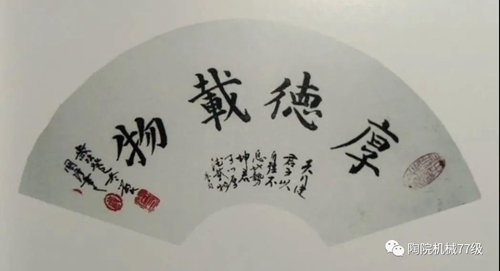 厚徳載物
天行健
君子以
自強不
息地勢
坤君
子以厚
陶院机械77级